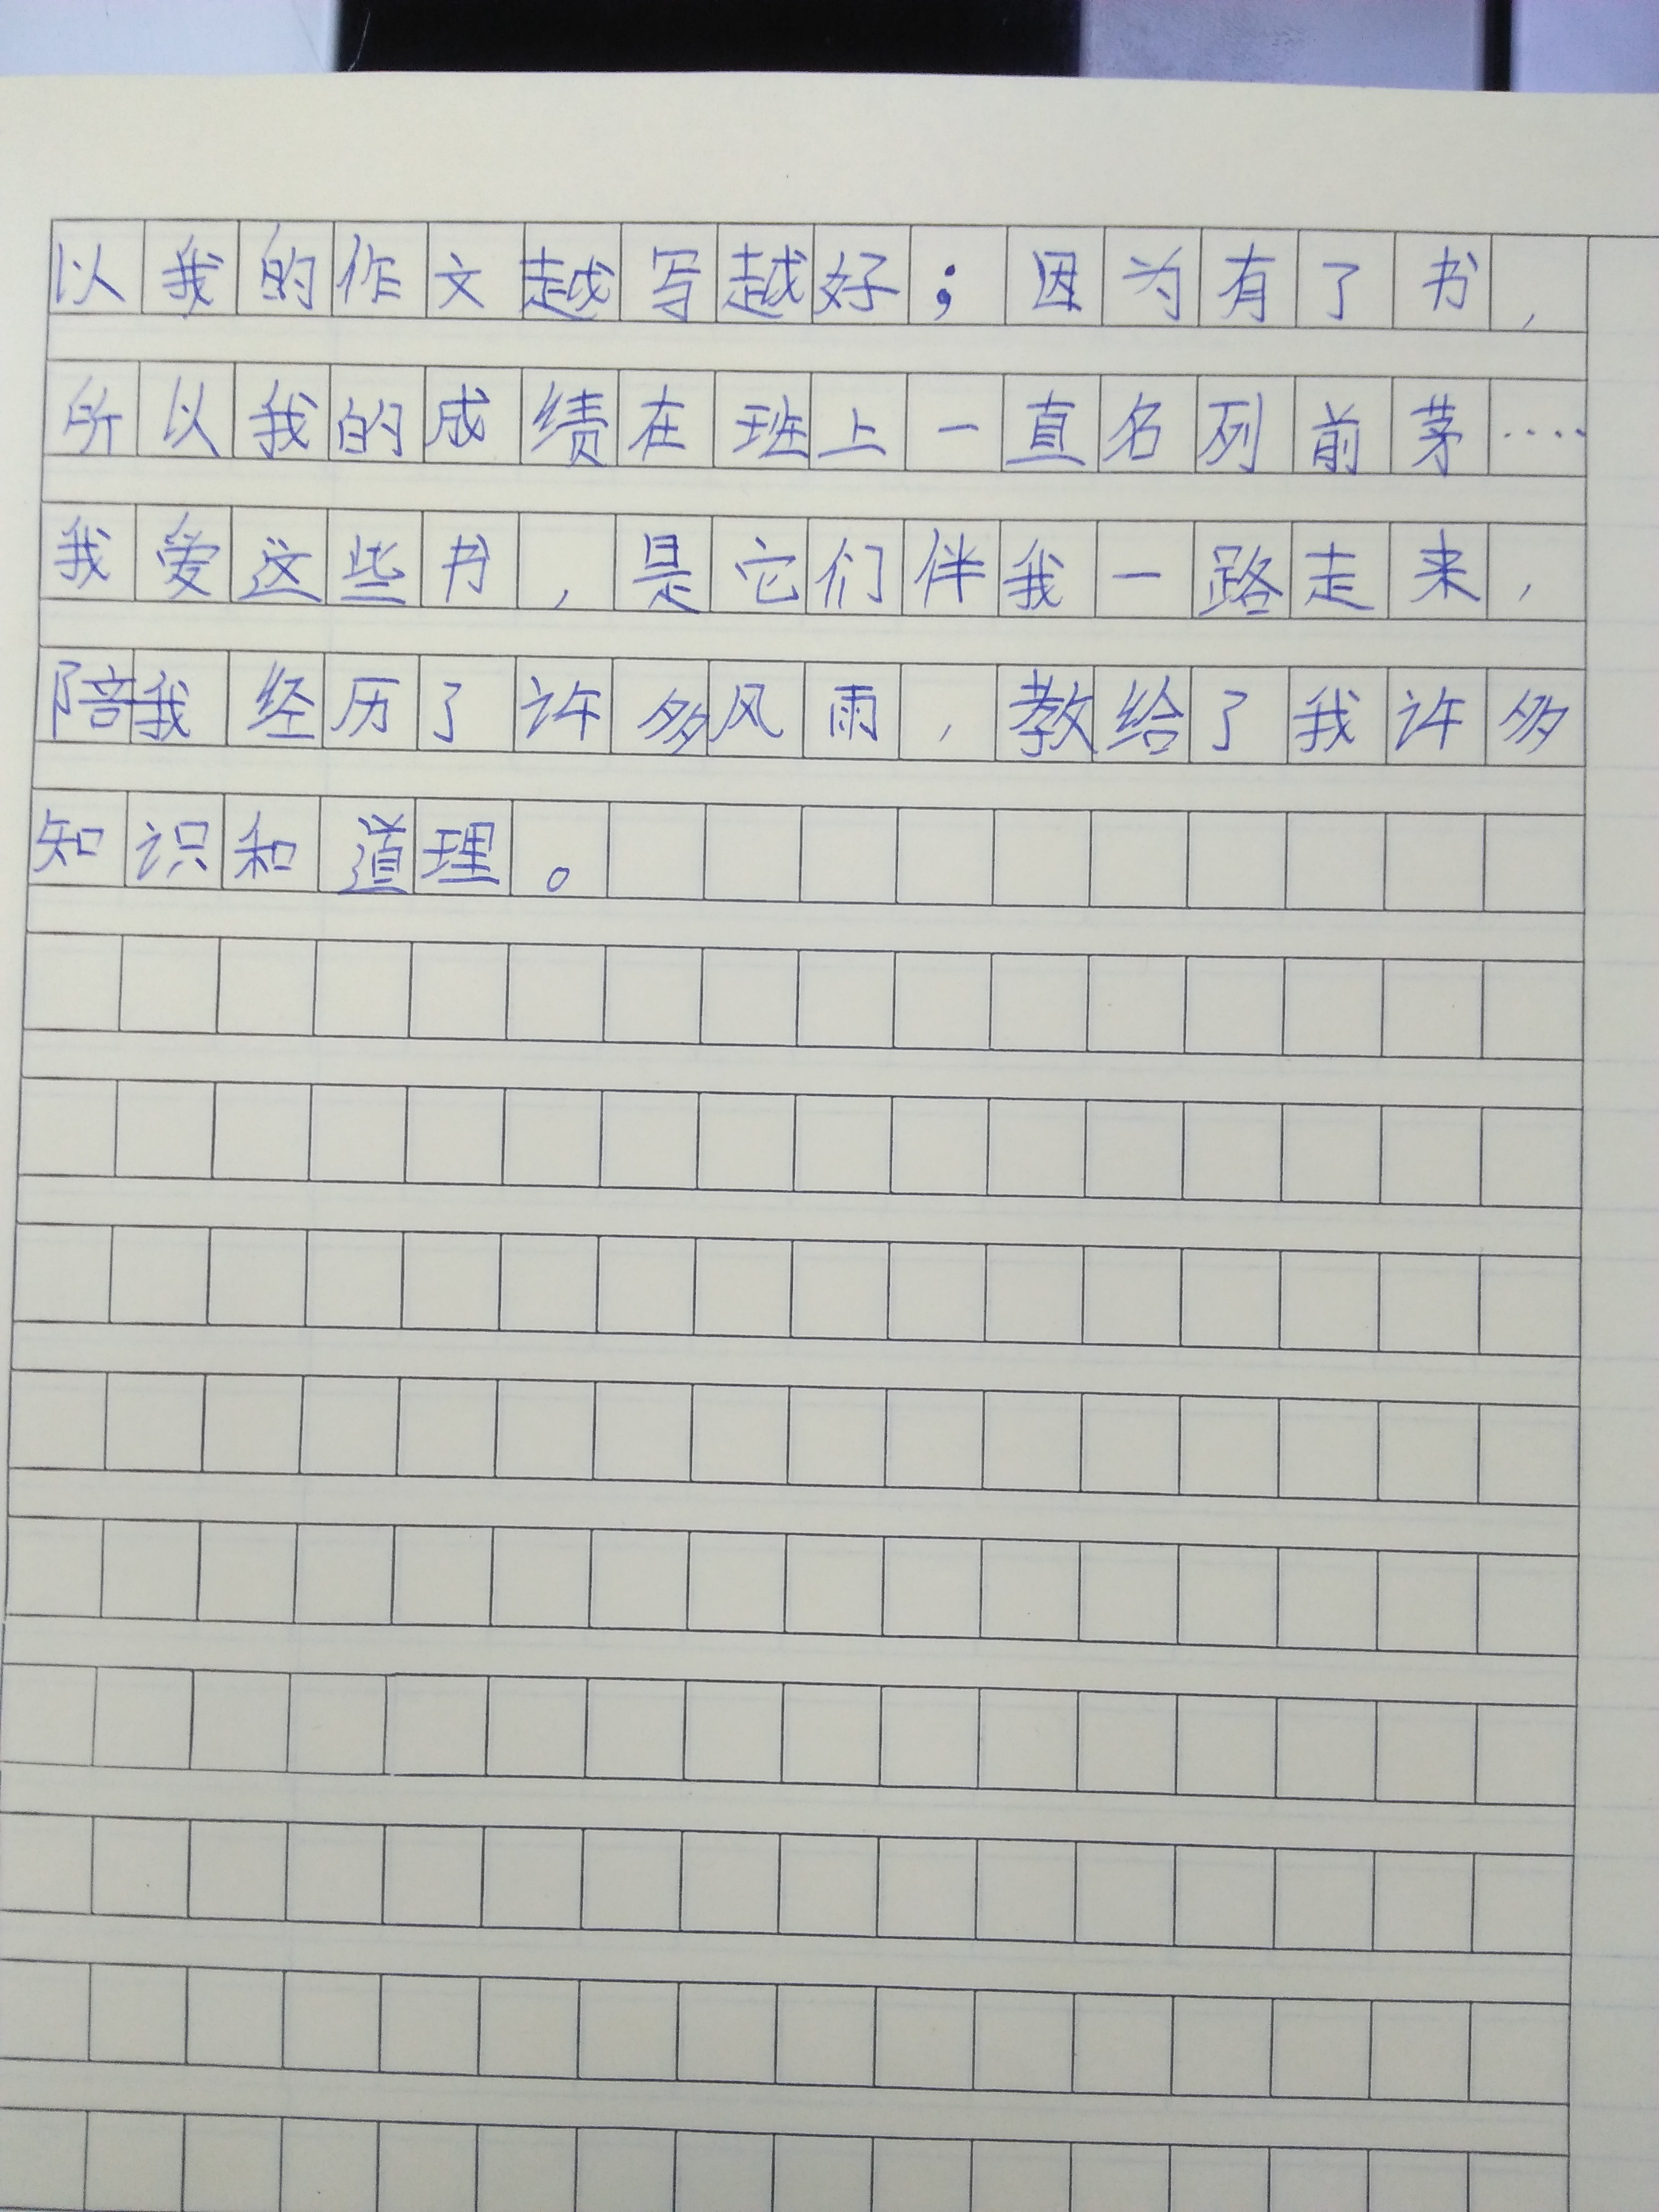 以我的作文越写越好；因为有了书，
所以我的成绩在班上一直名列前茅····
我爱这些书，是它们伴我一路走来，
陪我经历了许多风雨，教给了我许多
知识和道理。